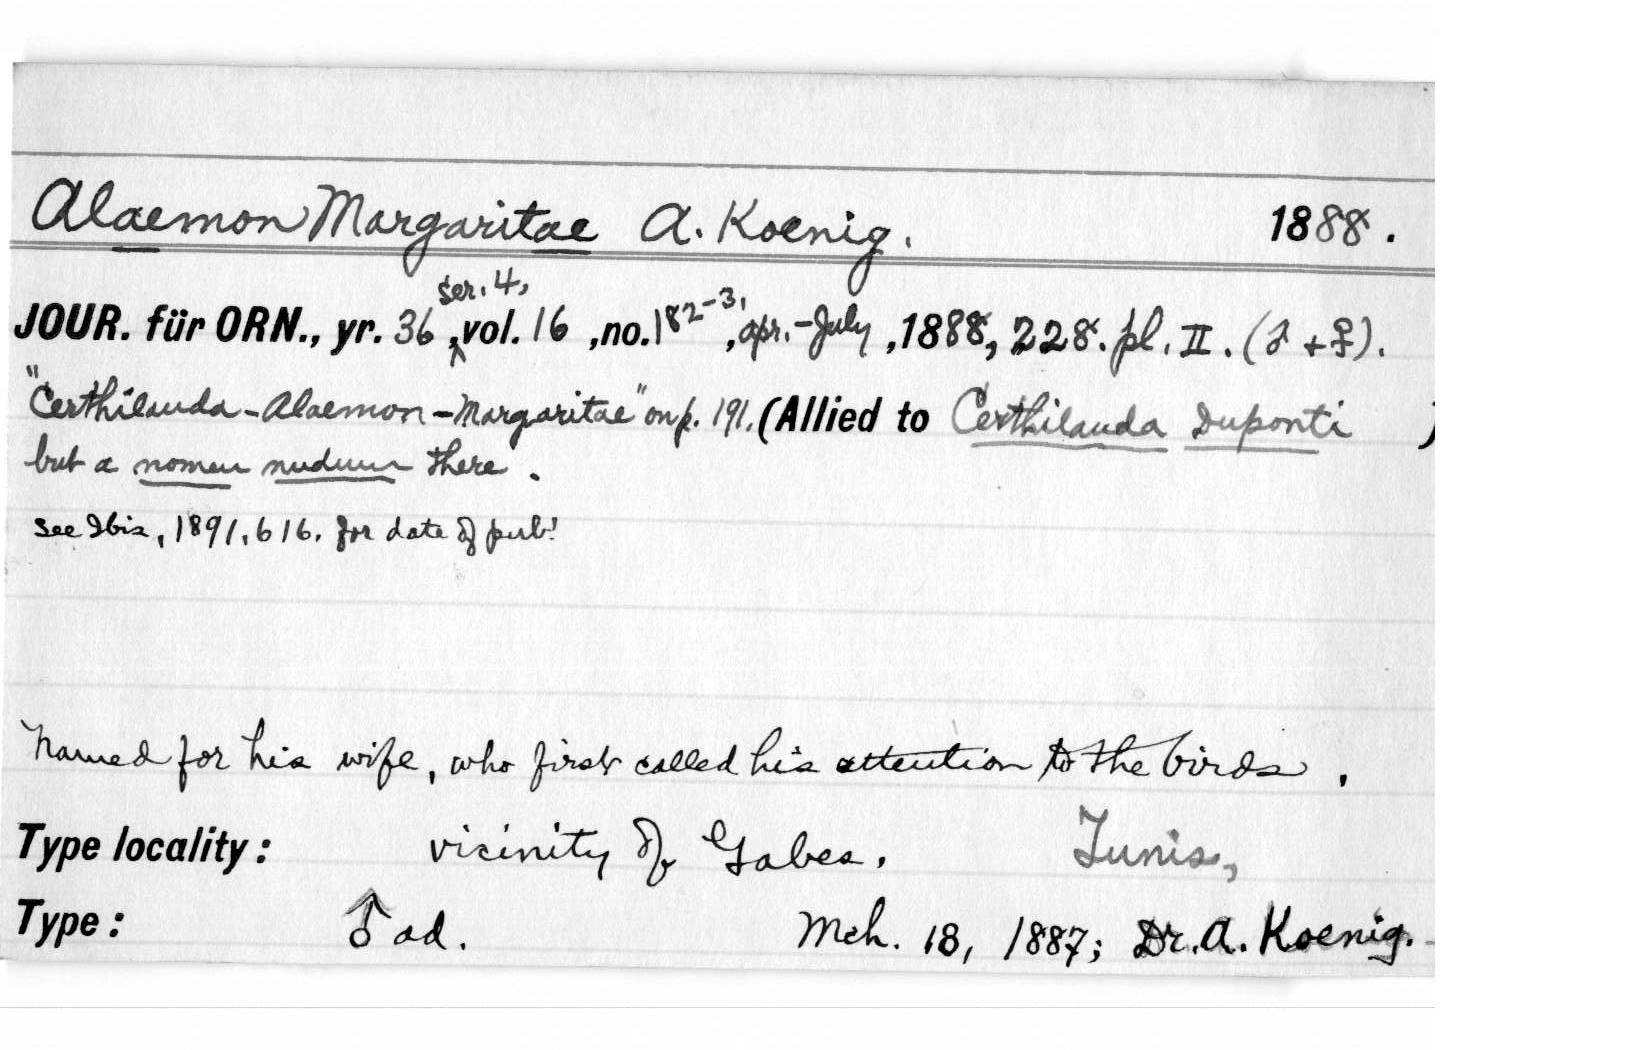 Alaemon Margaritae A. Koenig. 1888.
ser. 4,
JOUR. für ORN., yr. 36, vol. 16, no. 182-3, apr.-July, 1888, 228. pl. II. (♂ + ♀).
"Certhilauda-Alaemon-Margaritae" on p. 191. (Allied to Certhilauda Duponti )
but a nomen nudum there.
see Ibis, 1891, 616. for date of pub!
Named for his wife, who first called his attention to the birds.
Type locality: vicinity of Gabes. Tunis,
Type: ♂ ad. Mch. 18, 1887; Dr. A. Koenig.